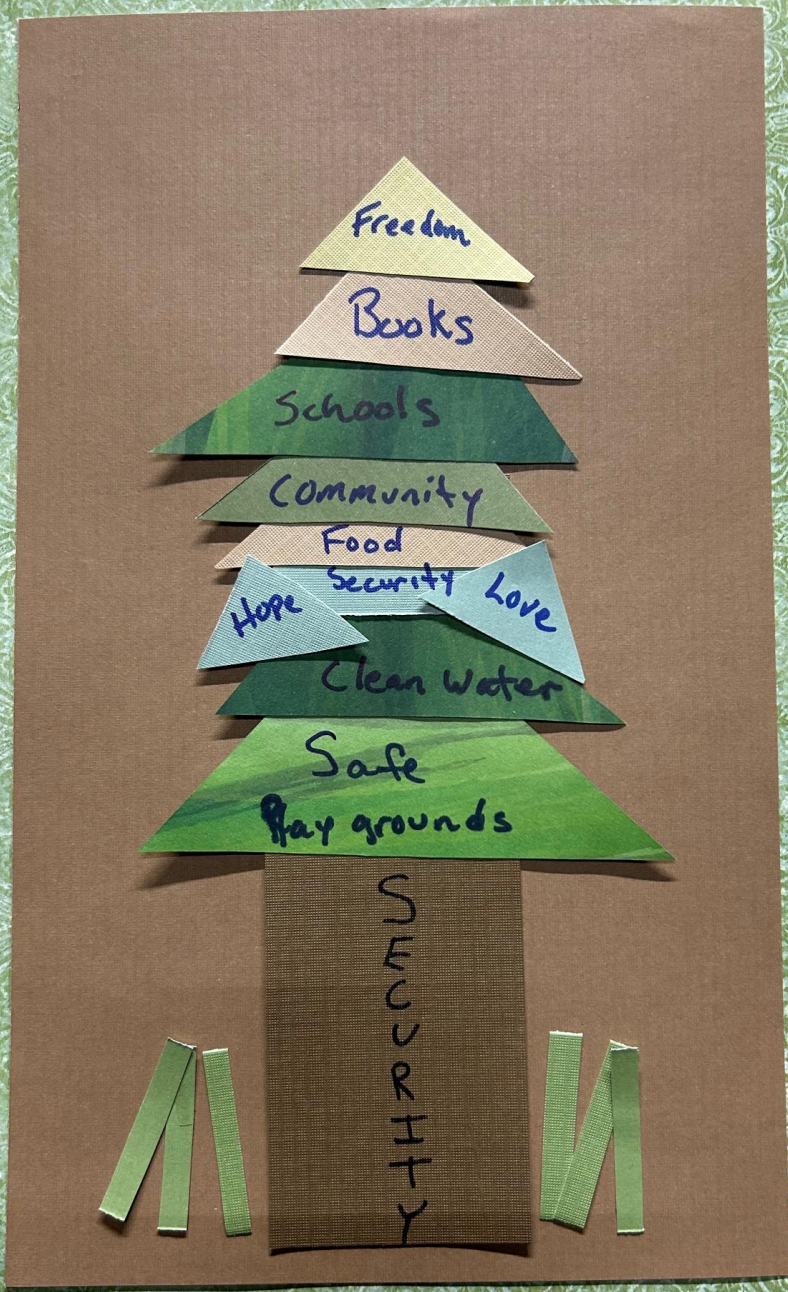 Freedom
Books
Schools
Community
Food
Security
Hope
Love
Clean Water
Safe
Play grounds
SECURITY